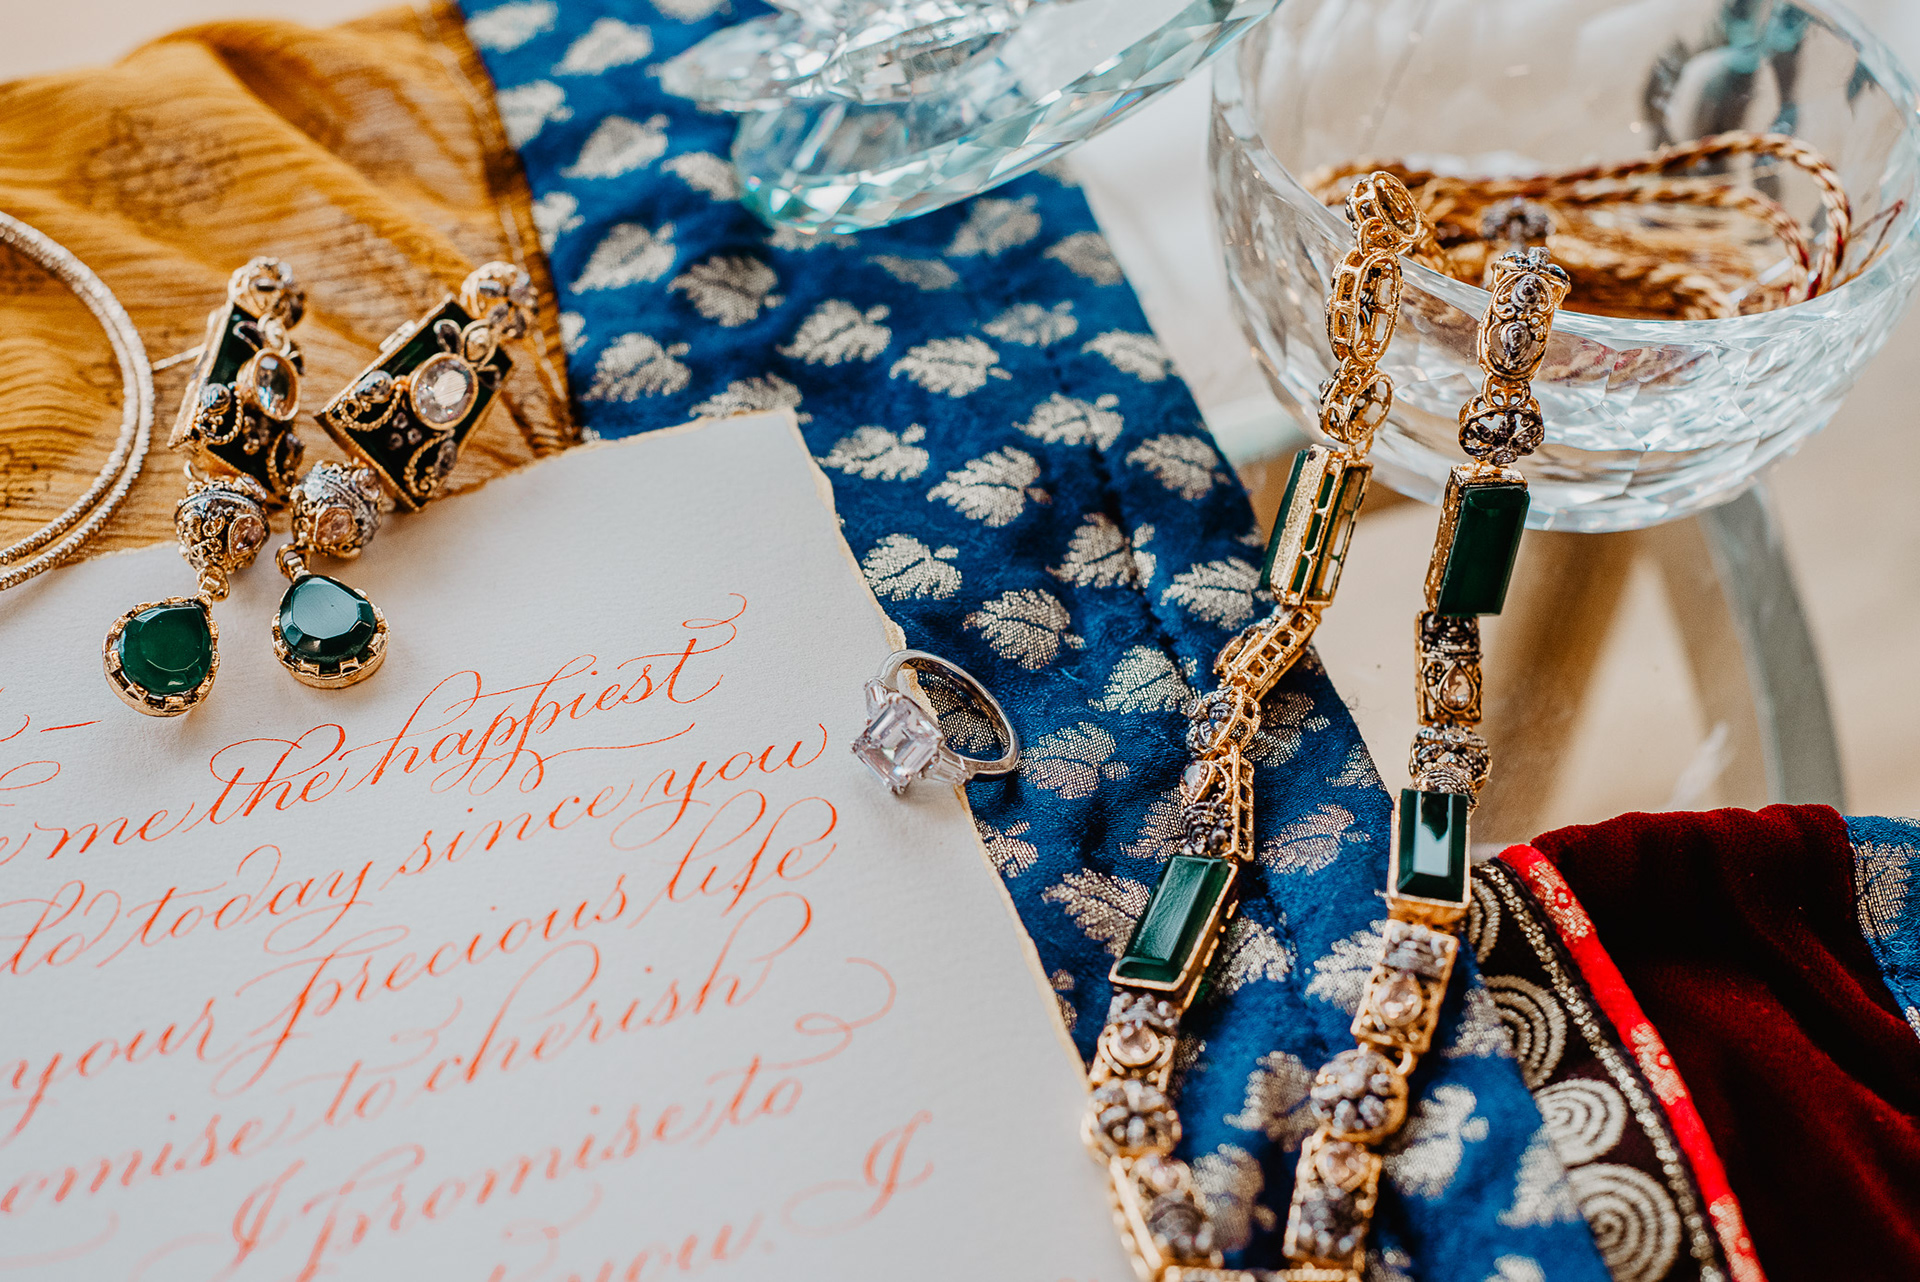 me the happiest
today since you
your precious life
to cherish
I promise to
you. I